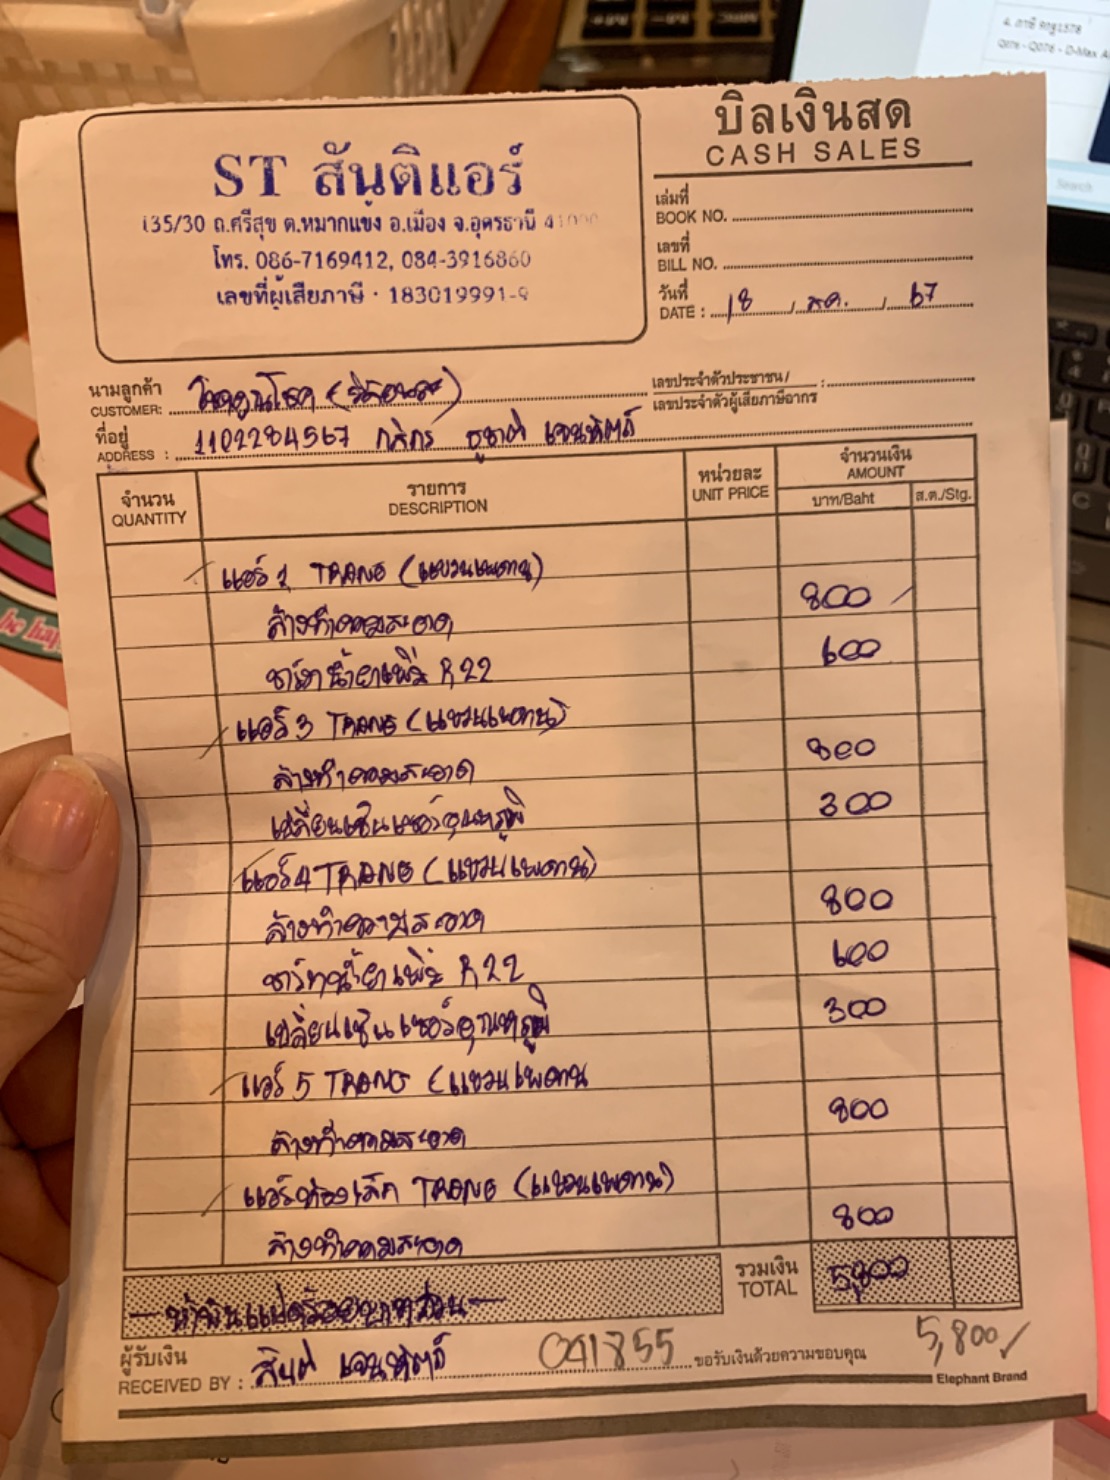 4. ภาษี
Search
he hap
บิลเงินสด
CASH SALES
ST สันติแอร์
135/30 ถ.ศรีสุข ต.หมากแข้ง อ.เมือง จ.อุดรธานี 41000
โทร. 086-7169412, 084-3916860
เลขที่ผู้เสียภาษี · 183019991-9
เล่มที่
BOOK NO.
เลขที่
BILL NO.
วันที่
DATE : 18 / / 67
นามลูกค้า
CUSTOMER:
เลขประจำตัวประชาชน/ :
เลขประจำตัวผู้เสียภาษีอากร
ที่อยู่
ADDRESS : 1102284567 กสิกร
จำนวน
QUANTITY
รายการ
DESCRIPTION
หน่วยละ
UNIT PRICE
จำนวนเงิน
AMOUNT
บาท/Baht
ส.ต./Stg.
แอร์ 1 TRANE (แขวนเพดาน)
ล้างทำความสะอาด 800
ชาร์ทน้ำยาเพิ่ม R22 600
แอร์ 3 TRANE (แขวนเพดาน)
ล้างทำความสะอาด 800
เปลี่ยนเซ็นเซอร์อุณหภูมิ 300
แอร์ 4 TRANE (แขวนเพดาน)
ล้างทำความสะอาด 800
ชาร์ทน้ำยาเพิ่ม R22 600
เปลี่ยนเซ็นเซอร์อุณหภูมิ 300
แอร์ 5 TRANE (แขวนเพดาน
ล้างทำความสะอาด 800
แอร์ห้องเล็ก TRANE (แขวนเพดาน)
ล้างทำความสะอาด 800
— ห้าพันแปดร้อยบาทถ้วน —
รวมเงิน
TOTAL
5,800
5,800
ผู้รับเงิน
RECEIVED BY :
041855
ขอรับเงินด้วยความขอบคุณ
Elephant Brand